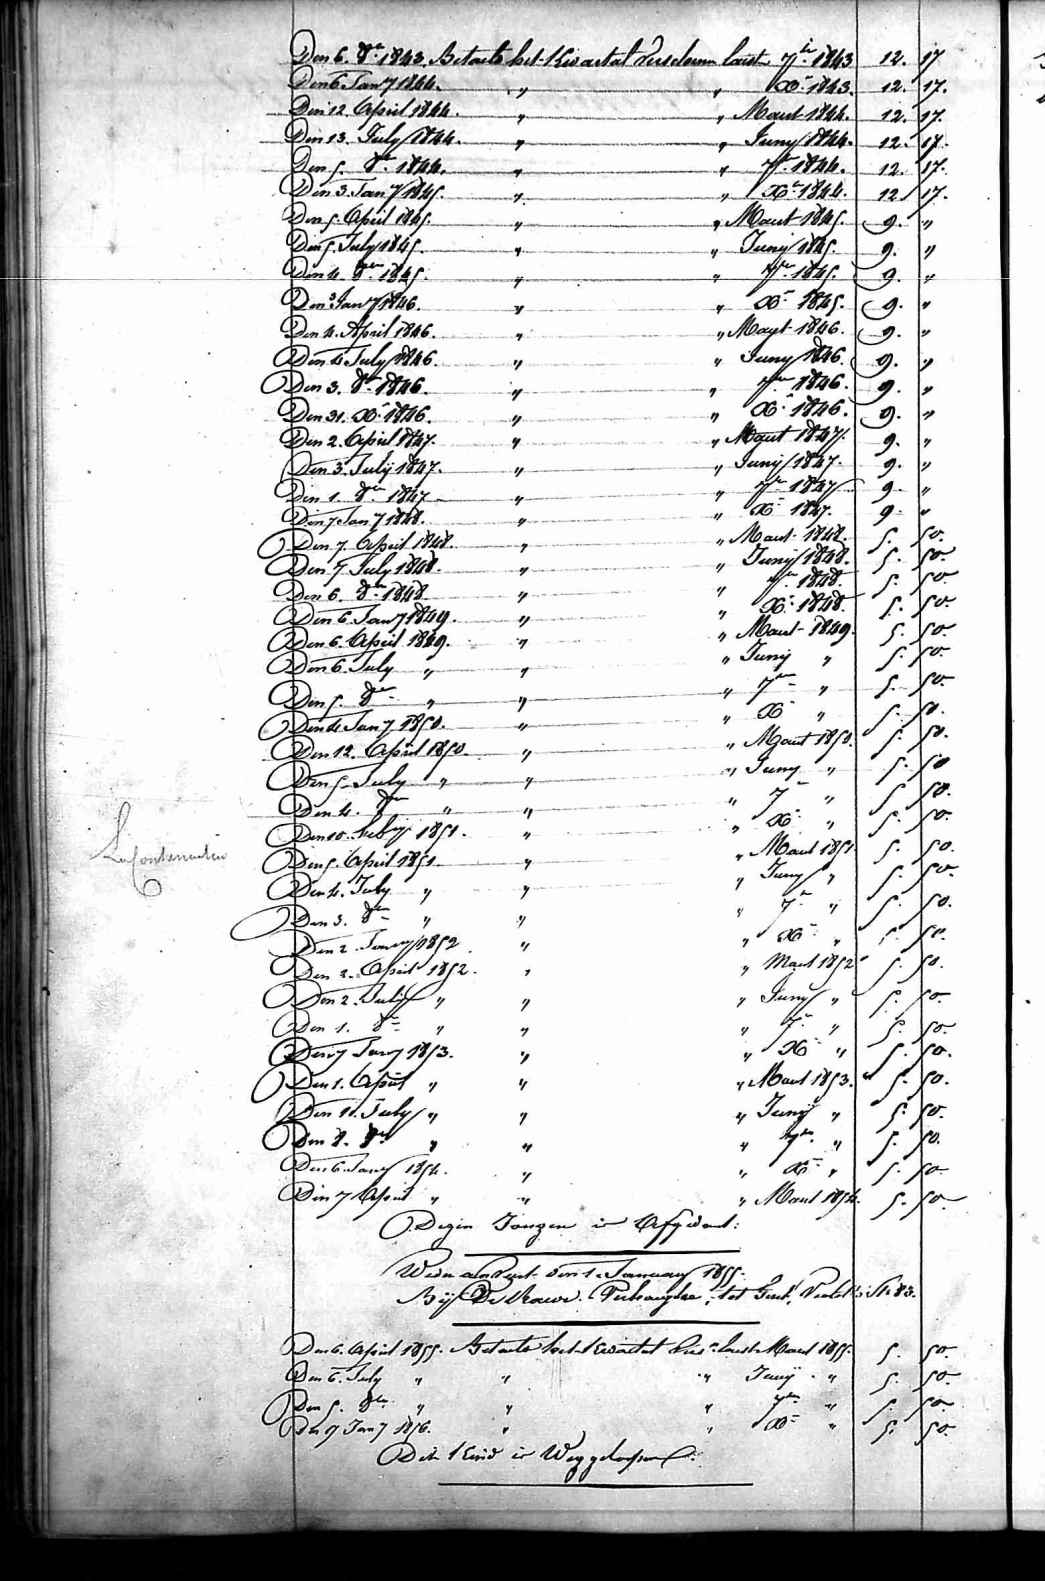 Den 6. 8re 1843. Betaald het Kwartaal Verschenen laest 7bre 1843 12. 17
Den 6 Jany 1844. " " Xr. 1843. 12. 17.
Den 12 April 1844. " " Maert 1844. 12. 17.
Den 13. July 1844. " " Juny 1844. 12. 17.
Den 5. 8re 1844. " " 7re 1844. 12. 17.
Den 3. Jany 1845. " " Xr. 1844. 12 17.
Den 5. April 1845. " " Maert 1845. 9. "
Den 5. July 1845. " " Juny 1845. 9. "
Den 4. 8re 1845. " " 7re 1845. 9. "
Den 3 Jany 1846. " " Xr 1845. 9. "
Den 4. April 1846. " " Maert 1846. 9. "
Den 4 July 1846. " " Juny 1846. 9. "
Den 3. 8re 1846. " " 7re 1846. 9. "
Den 31. Xr. 1846. " " Xr 1846. 9. "
Den 2. April 1847. " " Maert 1847. 9. "
Den 3. July 1847. " " Juny 1847. 9. "
Den 1. 8re 1847 " " 7re 1847 9. "
Den 7 Jany 1848. " " Xr 1847. 9. "
Den 7. April 1848. " " Maert 1848. 5. 50.
Den 7 July 1848. " " Juny 1848. 5. 50.
Den 6. 8re 1848. " " 7re 1848. 5. 50.
Den 6. Jany 1849. " " Xr. 1848. 5. 50.
Den 6. April 1849. " " Maert 1849. 5. 50.
Den 6. July " " " Juny " 5. 50.
Den 5. 8re " " " 7re " 5. 50.
Den 4 Jany 1850. " " Xr " 5. 50.
Den 12. April 1850. " " Maert 1850. 5. 50.
Den 5 July " " " Juny " 5. 50
Den 4. 8re " " " 7re " 5. 50.
Den 10. feby 1851. " " Xr. " 5. 50.
Den 5. April 1851. " " Maert 1851. 5. 50.
Den 4. July " " " Juny " 5. 50.
Den 3. 8re " " " 7re " 5. 50.
Den 2 Jany 1852 " " Xr. " 5. 50.
Den 2. April 1852. " " Maert 1852 5. 50.
Den 2. July " " " Juny " 5. 50.
Den 1. 8re " " " 7re " 5. 50.
Den 7 Jany 1853. " " Xr " 5. 50.
Den 1. April " " " Maert 1853. 5. 50.
Den 11. July " " " Juny " 5. 50.
Den 8. 8re " " " 7re " 5. 50.
Den 6 Jany 1854. " " Xr " 5. 50.
Den 7 April " " " Maert 1854. 5. 50.
Dezen Jongen is
Weder den 1. January 1855.
Bij De Vrouw tot Gent, No 83.
Den 6. April 1855. Betaald het Kwartaal Vers. laest Maert 1855. 5. 50.
Den 6. July " " " Juny " 5. 50.
Den 5. 8re " " " 7re " 5. 50.
Den 9 Jany 1856. " " Xr " 5. 50.
Dit Kind is Weggeloopen.